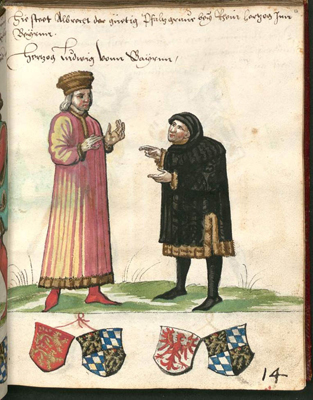 Hie steet Albrecht der gürtig Pfaltzgraue bey Rhein Hertzog Inn
Bayrnn.
Hertzog Ludwig vonn Bayrnn,
14